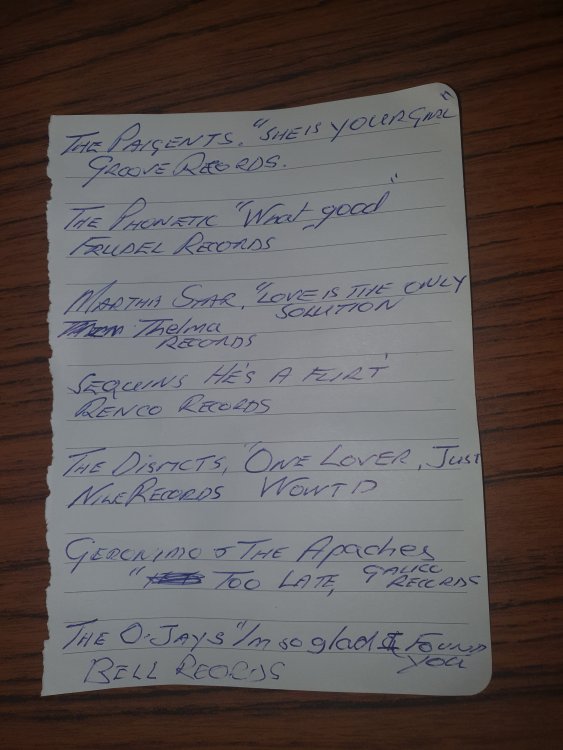 THE PAIGENTS. "SHE IS YOUR GIRL"
GROOVE RECORDS.
THE PHONETIC "What good"
FRUDEL RECORDS
MARTHA STAR, "LOVE IS THE ONLY
SOLUTION
Thelma
RECORDS
SEQUINS HE'S A FLIRT
RENCO RECORDS
THE DISTICTS, "ONE LOVER, JUST
NILE RECORDS WONT D
GERONIMO & THE Apaches
" TOO LATE, CALICO
RECORDS
THE O-JAYS "I'm so glad I FOUND
YOU
BELL RECORDS